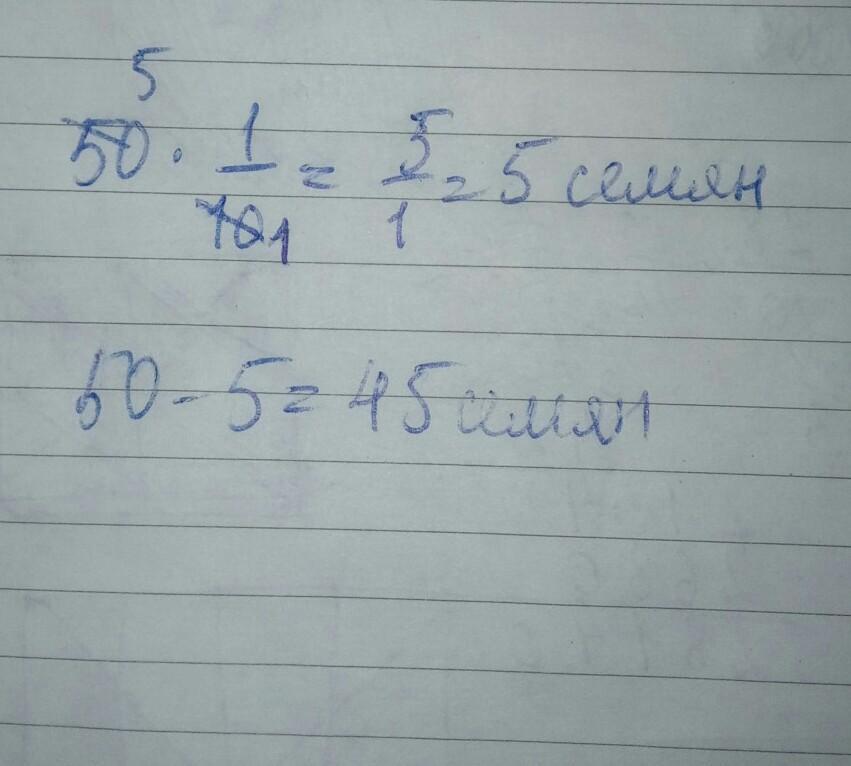 50 · 1/10 = 5/1 = 5 семян
50 - 5 = 45 семян